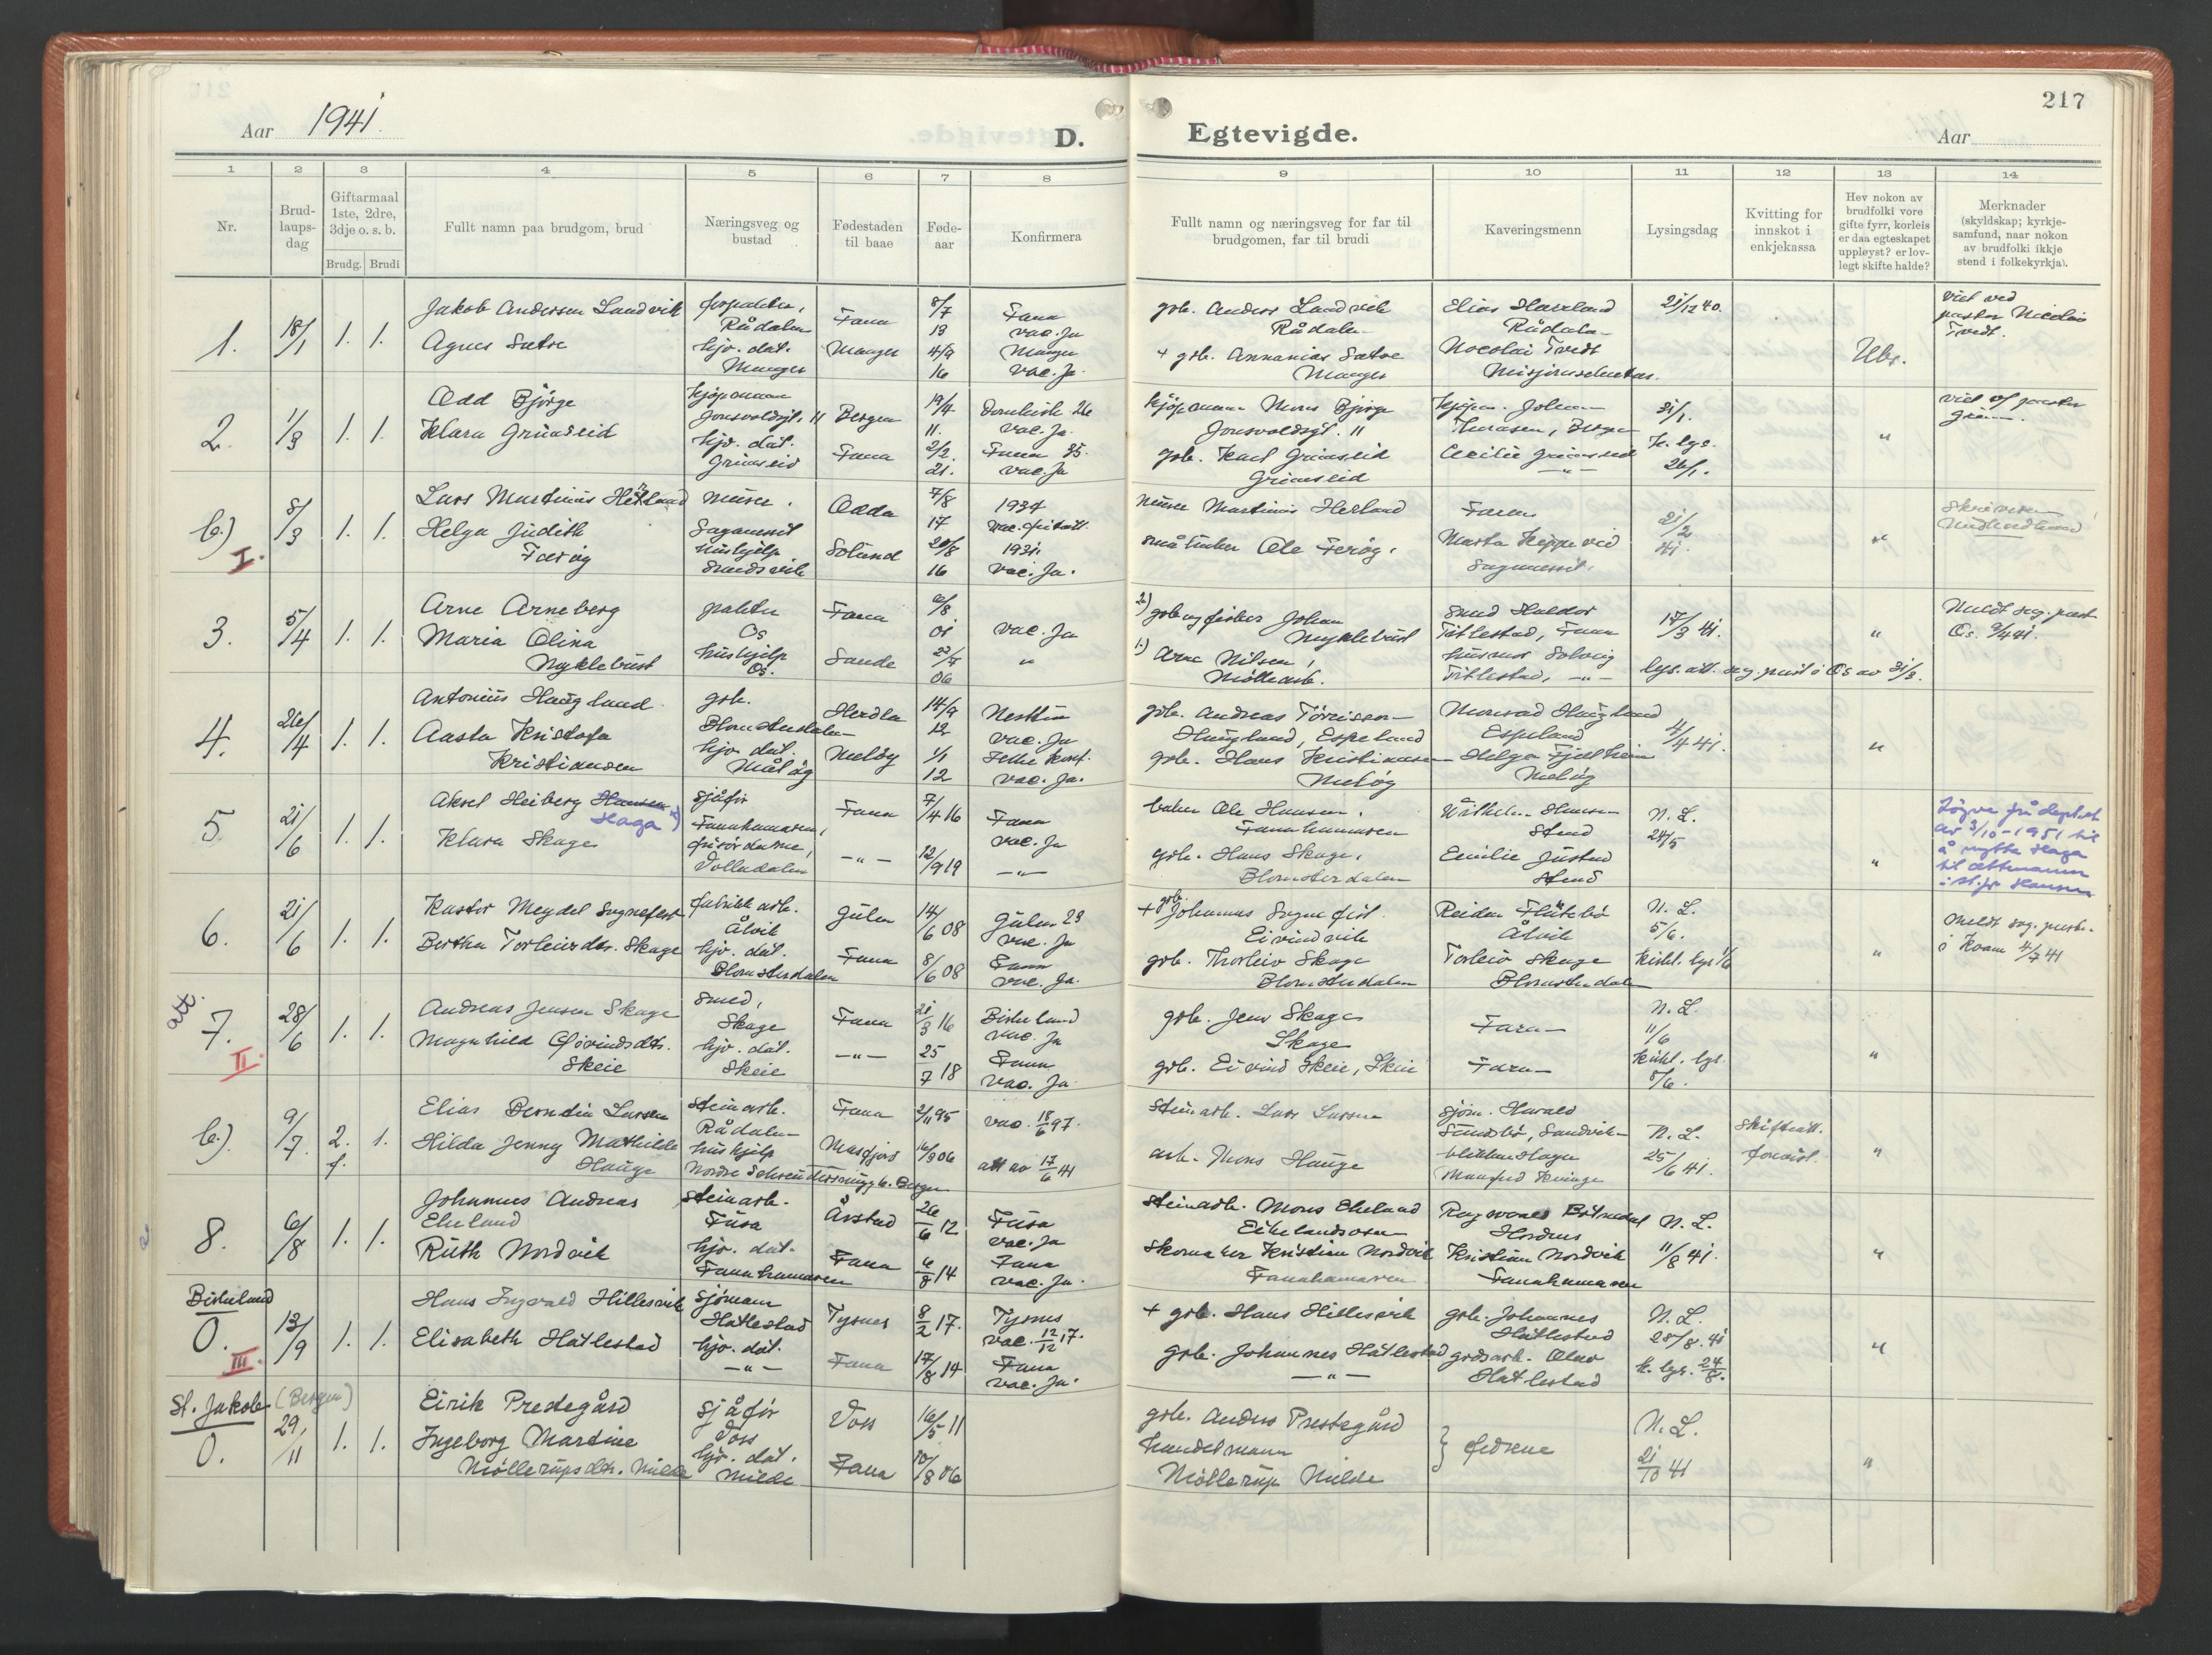 217
Aar 1941.
D. Egtevigde.
Aar
1 2 3 4 5 6 7 8 9 10 11 12 13 14
Nr.
Brud-
laups-
dag
Giftarmaal
1ste, 2dre,
3dje o. s. b.
Brudg. Brudi
Fullt namn paa brudgom, brud
Næringsveg og
bustad
Fødestaden
til baae
Føde-
aar
Konfirmera
Fullt namn og næringsveg for far til
brudgomen, far til brudi
Kaveringsmenn
Lysingsdag
Kvitting for
innskot i
enkjekassa
Hev nokon av
brudfolki vore
gifte fyrr, korleis
er daa egteskapet
uppløyst? er lov-
legt skifte halde?
Merknader
(skyldskap; kyrkje-
samfund, naar nokon
av brudfolki ikkje
stend i folkekyrkja).
1. 18/1 1. 1.
Jakob Andersen Sandvik
Rådalen
Fana
8/7 13
Fana
vac. Ja
Agnes Sætre
hjv. dat.
Manger
Manger
4/9 16
Manger
vac. Ja.
grb. Anders Sandvik
Rådalen
+ grb. Annanias Sætre
Manger
Elias Haveland
Rådalen
Nocolai Tvedt
21/12 40.
Ube.
viet ved
pastor Nicolai
Tvedt.
2. 1/3 1. 1.
Odd Bjørge
Kjøpmann
Jonsvoldsgt. 11
Bergen
19/4 11.
Domkirk 26
vac. Ja.
Klara Grimseid
hjv. dat.
Grimseid
Fana
2/2. 21.
Fana 35.
vac. Ja
kjøpmann Mons Bjørge
Jonsvoldsgt. 11
grb. Karl Grimseid
Grimseid
Kjøpm. Johan
Bergen
Cecilie Grimseid
— " —
31/1.
K. lys.
26/1.
"
viet af pastor
b.) I. 8/3 1. 1.
Lars Martinus Hetland
murer.
Sagmunst
Odda
7/8 17
1934
Helga Judith
Færøy
hushjelp
Sandsvik
Solund
20/8 16
1931.
vac. Ja.
murer Martinus Hetland
småbruker Ole Færøy.
Faren
Marta Keppevid
21/2 41.
"
3. 5/4 1. 1.
Arne Arneberg
Os
Fana
vac. Ja
Maria Olina
Myklebust
hushjelp
Os.
Sande
22/7 06
"
2.) grb. og fisker Johan
Myklebust
1.) Arne Nilsen,
Møllearb.
Smed Haldor
Titlestad, Fana
husmor Solveig
Titlestad, — " —
17/3 41.
lys. att. sog. prest i Os av 31/3.
"
Meldt sog. prest
Os. 9/4 41.
4. 26/4 1. 1.
Antonius Haugland.
grb.
Blomsterdalen
Herdla
14/9 12
Nesttun
vac. Ja
Aasta Kristofa
Kristiansen
hjv. dat.
Måløy
Meløy
1/1 12
vac. Ja.
grb. Andreas Tørrisen
Haugland, Espeland
grb. Hans Kristiansen
Meløy
Monrad Haugland
Espeland
Helga Fjellheim
Meløy
4/4 41.
"
5. 21/6 1. 1.
Aksel Heiberg Hansen
Haga x)
sjåfør
Fanahamaren,
Fana
7/4 16
Fana
vac. Ja
Klara Skage
frisørdame,
Dolledalen
— " —
12/9 19
— " —
baker Ole Hansen,
Fanahamaren
grb. Hans Skage,
Blomsterdalen
Wilhelm Hansen
Stend
Emilie Justad
Stend
N. L.
24/5
"
Løyve frå dept.
av 3/10-1951 til
å nytta Haga
til ættenamn
i st. for Hansen
6. 21/6 1. 1.
Kastor Meydel Sognefest
fabrikk arb.
Ålvik
Gulen
14/6 08
Gulen 23
vac. Ja
Bertha Torleivsdtr. Skage
hjv. dat.
Blomsterdalen
Fana
8/6 08
Fana
vac. Ja.
+ grb. Johannes Sognefest.
Eivindvik
grb. Thorleiv Skage
Blomsterdalen
Reidar Flåtebø
Ålvik
Torleiv Skage
Blomsterdalen
N. L.
5/6.
kirkl. lys 1/6
"
Meldt sog. prest.
i Kvam 4/7 41
att. 7. II. 28/6 1. 1.
Andreas Jensen Skage
Smed,
Skage
Fana
21/3 16
Birkeland
vac. Ja
Magnhild Eivindsdtr.
Skeie
hjv. dat.
Skeie
— " —
25/7 18
Fana
vac. Ja.
grb. Jens Skage
Skage
grb. Eivind Skeie, Skeie
Faren
Faren
N. L.
11/6
kirkl. lys.
8/6.
"
b.) 9/7. 2. f. 1.
Elias Berntin Larsen
Steinarb.
Rådalen
Fana
2/11 95
vac. 18/6 97.
Hilda Jenny Mathilde
Hauge
hushjelp
Masfjord
16/3 06
att av 17/6 41
Steinarb. Lars Larsen
arb. Mons Hauge
sjøm. Harald
Sundbø, Sandvik
N. L.
25/6 41.
Skifteatt.
forevist.
"
8. 6/8 1. 1.
Johannes Andreas
Ekeland
Steinarb.
Fusa
Årstad
26/6 12
Fusa
vac. Ja
Ruth Nordvik
hjv. dat.
Fanahamaren
Fana
6/8 14
Fana
vac. Ja.
Steinarb. Mons Ekeland
Eikelandsosen
Skomaker Kristian Nordvik
Fanahamaren
Kristian Nordvik
Fanahamaren
N. L.
11/8 41.
"
Birkeland
0. III. 13/9 1. 1.
Hans Ingvald Hillesvik
sjømann
Hatlestad
Tysnes
8/2 17.
Tysnes
vac. 12/12 17.
Elisabeth Hatlestad
hjv. dat.
— " —
Fana
17/8 14
Fana
vac. Ja.
+ grb. Hans Hillesvik
grb. Johannes Hatlestad
— " —
grb. Johannes
Hatlestad
grdsarb. Olav
Hatlestad
N. L.
28/8. 41
k. lys. 24/8.
"
St. Jakob (Bergen)
0. 29/11 1. 1.
Eirik Prestegård
sjåfør
Voss
Voss
16/5 11
Ingeborg Martine
Møllerupsdtr. Milde
hjv. dat.
Milde
Fana
10/8 06
grb. Anders Prestegård
handelsmann
Møllerup Milde
} Fedrene
N. L.
21/10 41
"